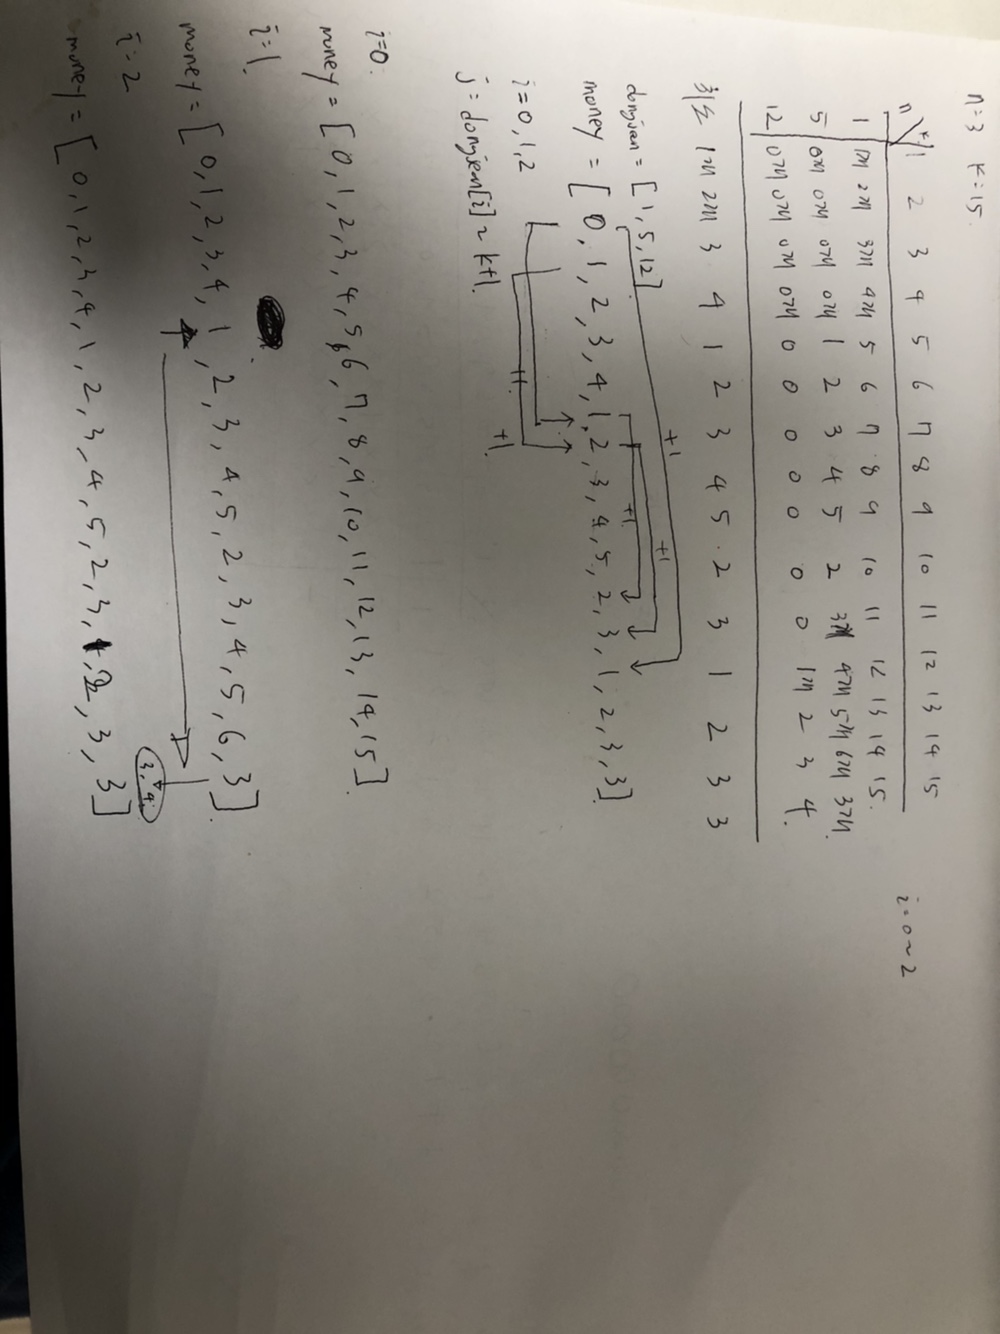 n=3 k=15
n\k 1 2 3 4 5 6 7 8 9 10 11 12 13 14 15
i=0~2
1 1개 2개 3개 4개 5 6 7 8 9 10 11 12 13 14 15
5 0개 0개 0개 0개 1 2 3 4 5 2 3개 4개 5개 6개 3개
12 0개 0개 0개 0개 0 0 0 0 0 0 0 1개 2 3 4
최소 1개 2개 3 4 1 2 3 4 5 2 3 1 2 3 3
dongjeon = [1, 5, 12]
+1
money = [0, 1, 2, 3, 4, 1, 2, 3, 4, 5, 2, 3, 1, 2, 3, 3]
+1 +1
i=0,1,2
+1 +1
j=dongjeon[i]~k+1
i=0.
money = [0, 1, 2, 3, 4, 5, 6, 7, 8, 9, 10, 11, 12, 13, 14, 15]
i=1.
money = [0, 1, 2, 3, 4, 1, 2, 3, 4, 5, 2, 3, 4, 5, 6, 3]
3, 4
i=2
money = [0, 1, 2, 3, 4, 1, 2, 3, 4, 5, 2, 3, 1, 2, 3, 3]